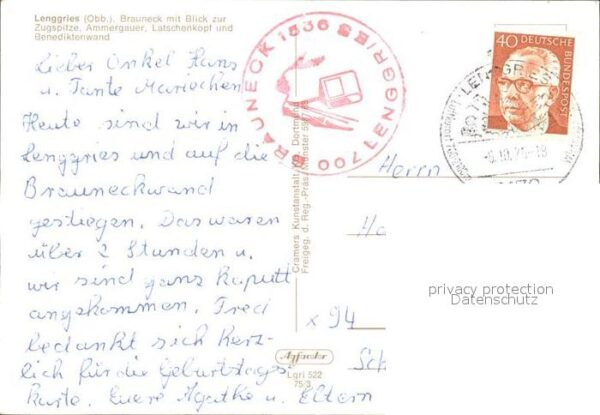 Lenggries (Obb.), Brauneck mit Blick zur
Zugspitze, Ammergauer, Latschenkopf und
Benediktenwand
Lieber Onkel Hans
u. Tante Mariechen
Heute sind wir in
Lenggries und auf die
Brauneckwand
gestiegen. Das waren
über 2 Stunden u.
wir sind ganz kaputt
angekommen. Fred
bedankt sich herz-
lich für die Geburtstags-
karte. Euere Agathe u. Eltern
BRAUNECK 1536
LENGGRIES 700
Cramers Kunstanstalt, Dortmund
Freigeg. d. Reg.-Präs. Münster
Agfacolor
Lgri 522
75/3
x 94
40 DEUTSCHE
BUNDESPOST
LENGGRIES
Herrn
privacy protection
Datenschutz